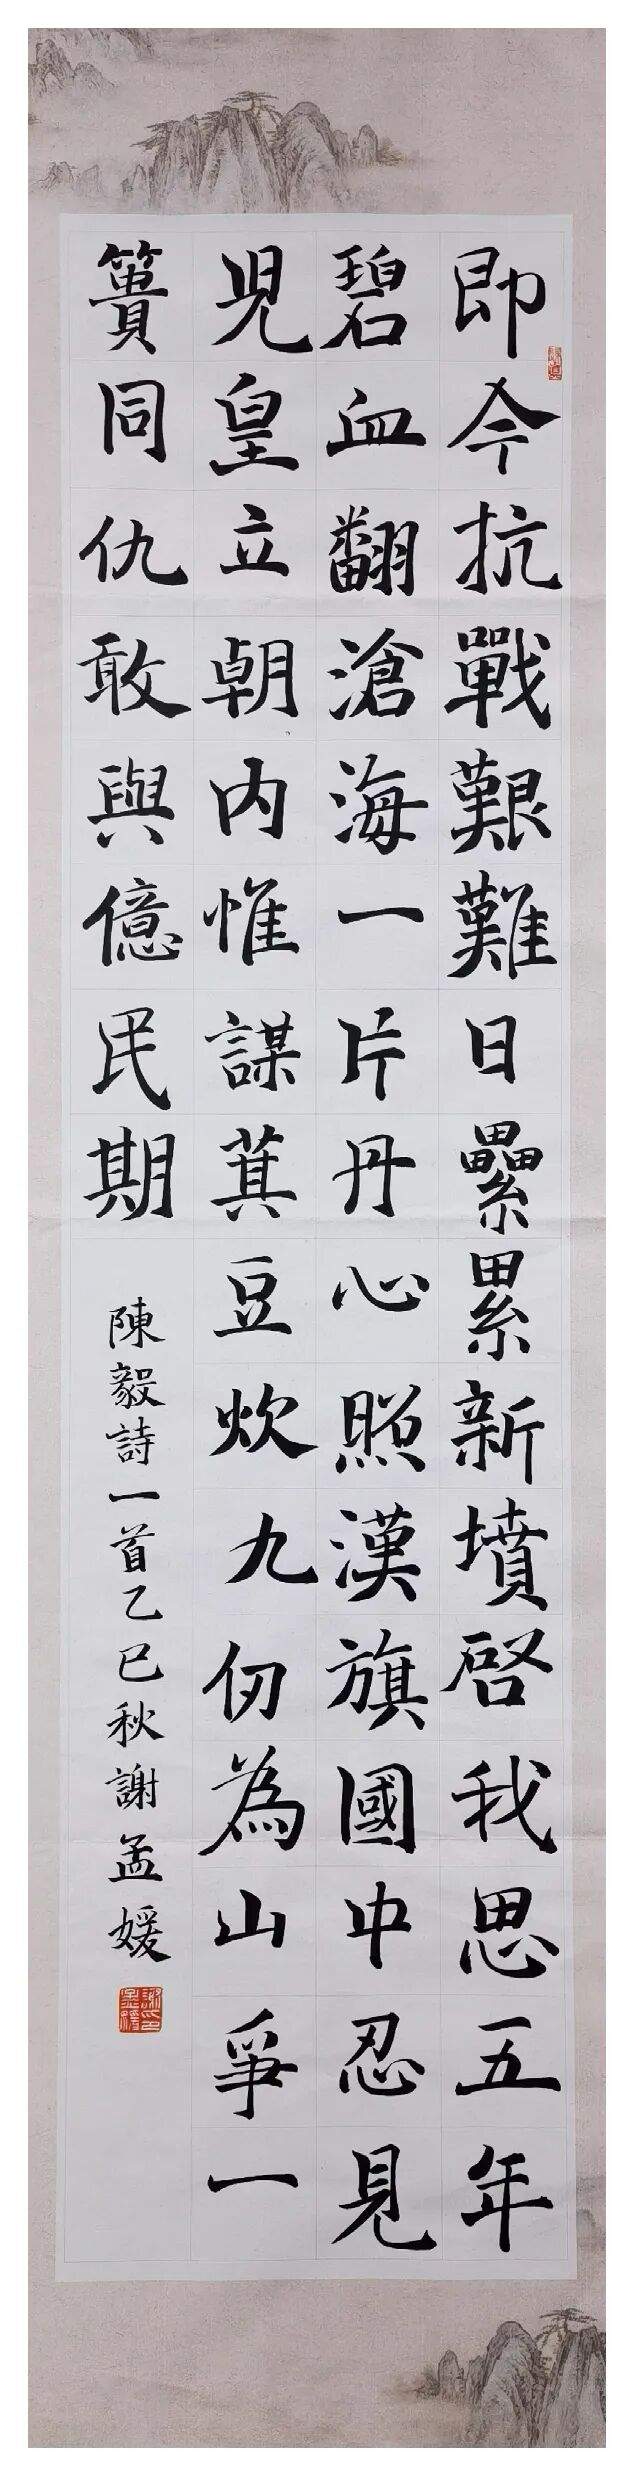 即今抗戰艱難日纍累新墳啓我思五年
碧血翻滄海一片丹心照漢旗國中忍見
児皇立朝內惟謀萁豆炊九仞為山爭一
簣同仇敢與億民期
陳毅詩一首乙巳秋謝孟媛